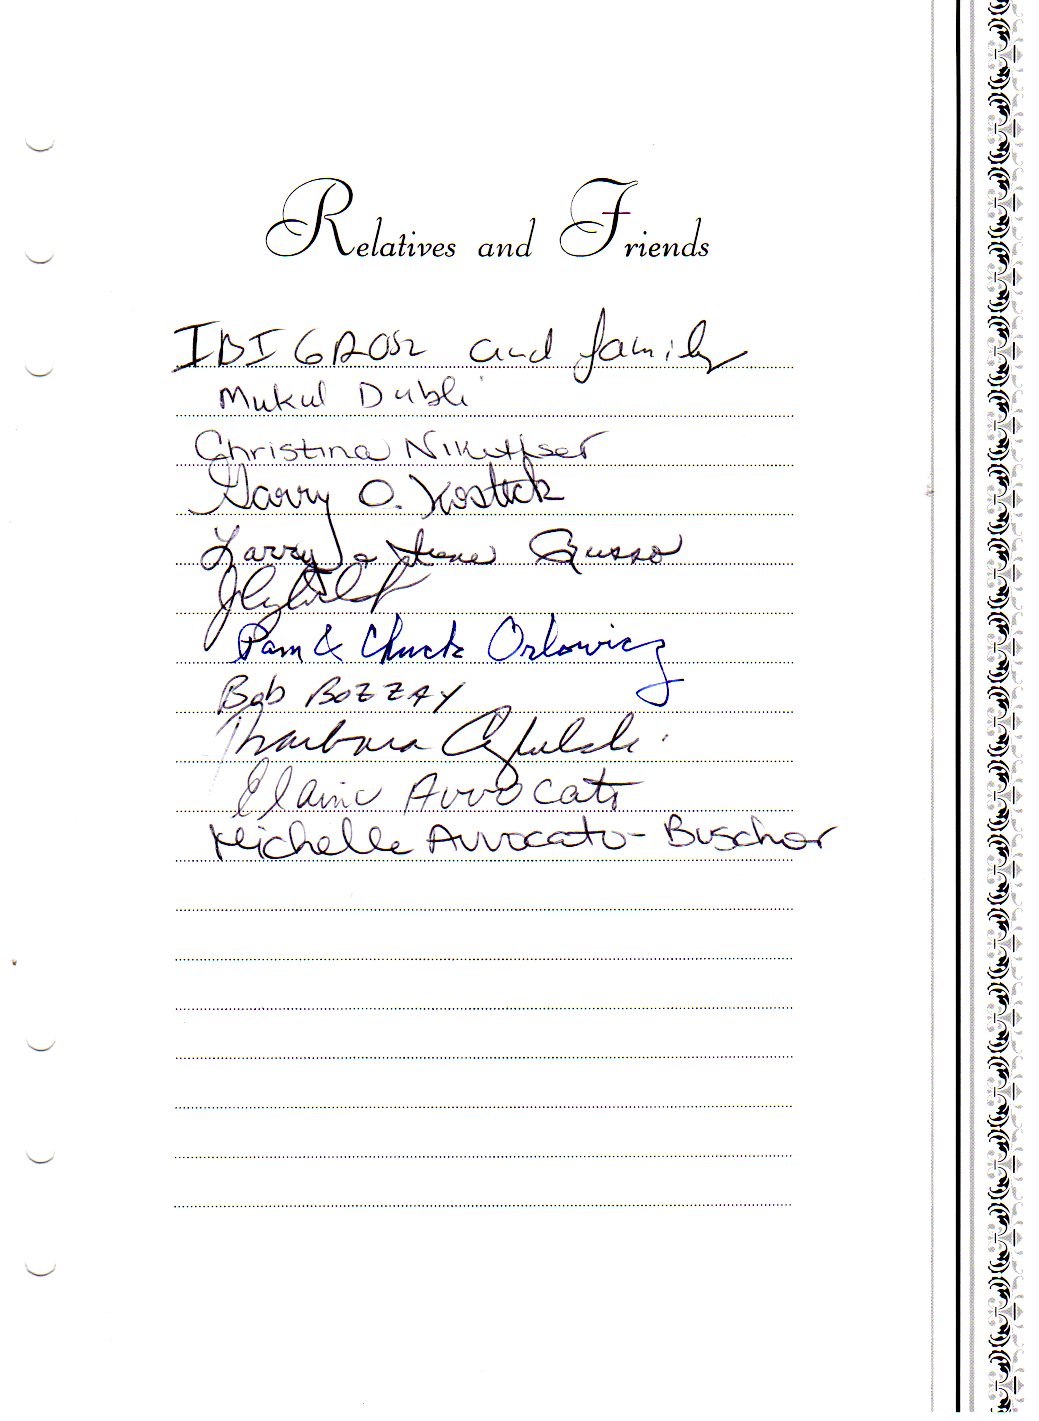 Relatives and Friends
IBI GROSZ and family
Mukul Dubli
Christina
Garry O. Kostick
Larry & Irene Russo
Pam & Chuck Orlowicz
Bob BOZZAY
Barbara
Elaine Avvocato
Michelle Avvocato-Buscher